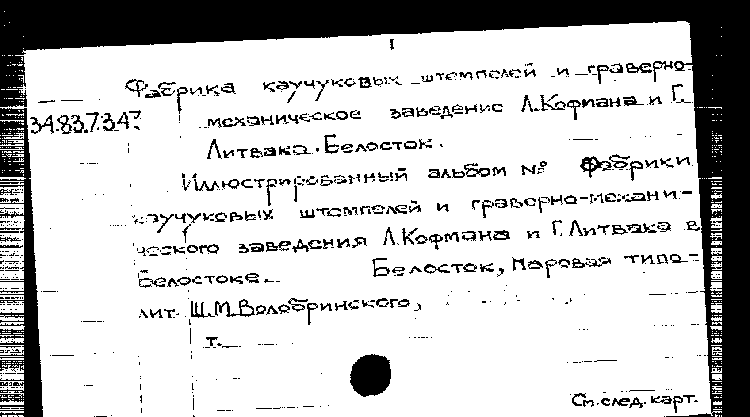 I
Фабрика каучуковых штемпелей и граверно-
34.83.7.34?
механическое заведение Л.Кофмана и Г.
Литвака. Белосток.
Иллюстрированный альбом № фабрики
каучуковых штемпелей и граверно-механи-
ческого заведения Л.Кофмана и Г.Литвака в
Белостоке. Белосток, паровая типо-
лит. Ш.М.Волобринского,
т.
См. след. карт.